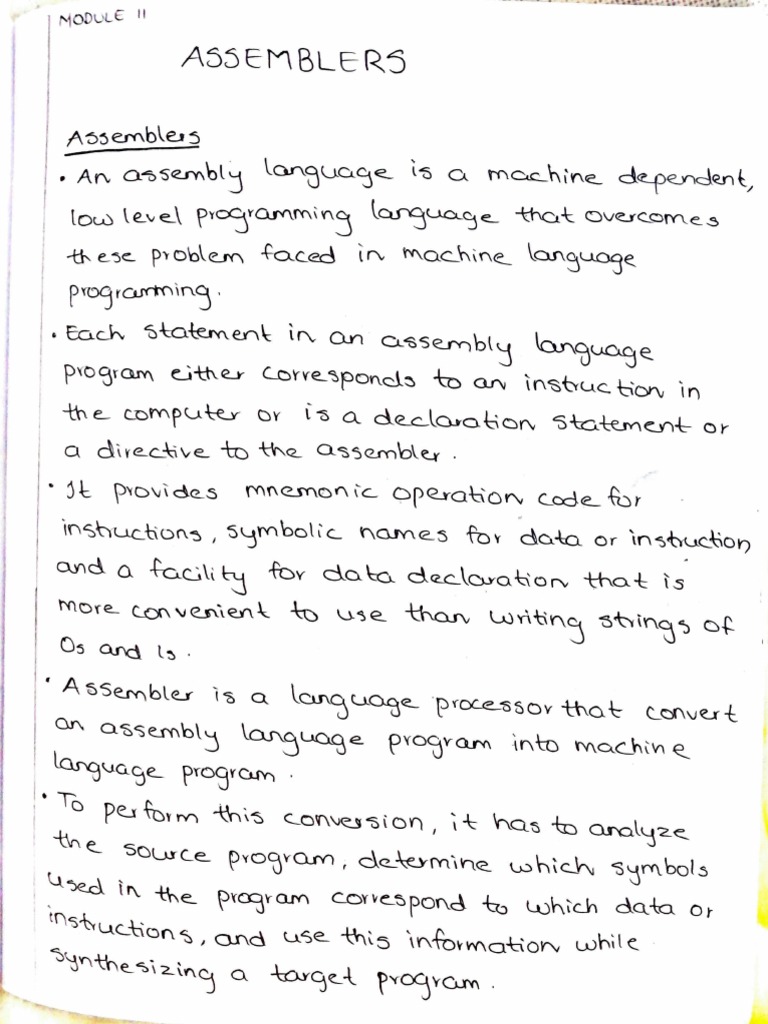 MODULE 11
ASSEMBLERS
Assemblers
• An assembly language is a machine dependent,
low level programming language that overcomes
these problem faced in machine language
programming.
• Each statement in an assembly language
program either corresponds to an instruction in
the computer or is a declaration statement or
a directive to the assembler.
• It provides mnemonic operation code for
instructions, symbolic names for data or instruction
and a facility for data declaration that is
more convenient to use than writing strings of
0s and 1s.
• Assembler is a language processor that convert
an assembly language program into machine
language program.
• To perform this conversion, it has to analyze
the source program, determine which symbols
used in the program correspond to which data or
instructions, and use this information while
synthesizing a target program.